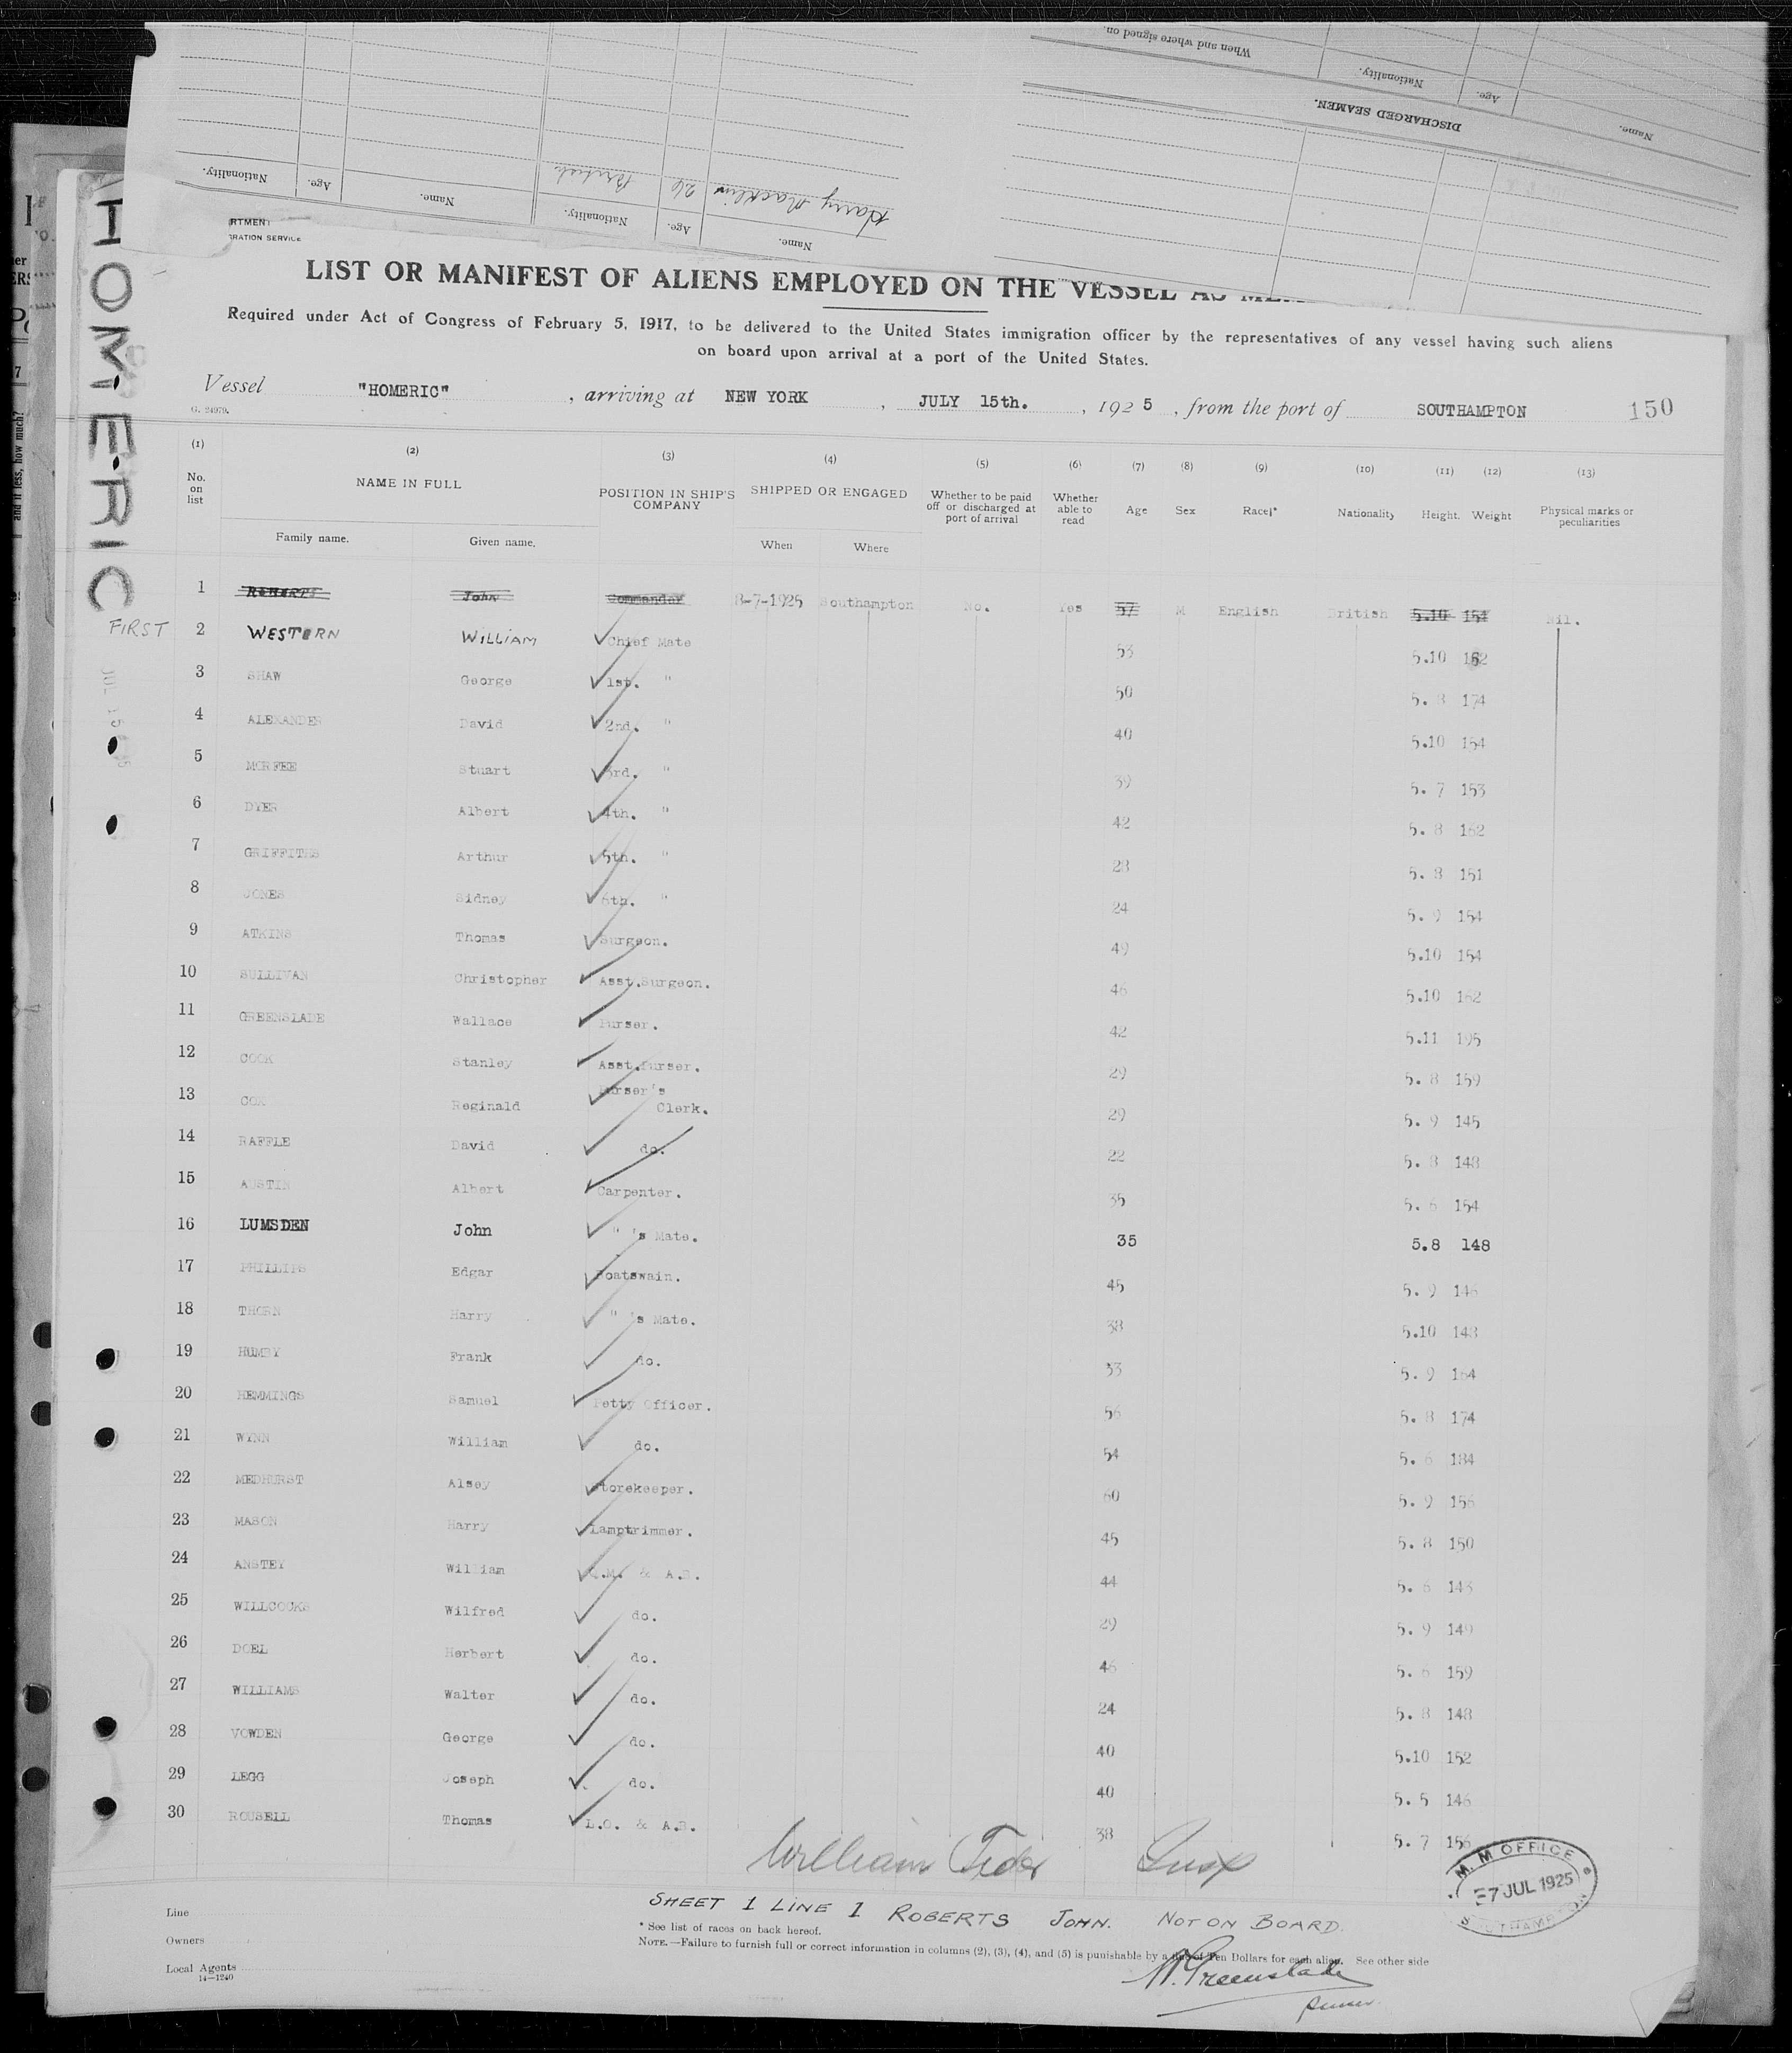 When and where signed on.
Nationality.
Age.
Name.
DISCHARGED SEAMEN.
Nationality.
Age.
Name.
British
26
Harry
Nationality.
Age.
Name.
HOMERIC
RTMENT
GRATION SERVICE
LIST OR MANIFEST OF ALIENS EMPLOYED ON THE VESSEL AS
Required under Act of Congress of February 5, 1917, to be delivered to the United States immigration officer by the representatives of any vessel having such aliens
on board upon arrival at a port of the United States.
Vessel "HOMERIC" , arriving at NEW YORK , JULY 15th. , 1925 , from the port of SOUTHAMPTON 150
G. 24979.
(1) (2) (3) (4) (5) (6) (7) (8) (9) (10) (11) (12) (13)
No. on list NAME IN FULL POSITION IN SHIP'S COMPANY SHIPPED OR ENGAGED Whether to be paid off or discharged at port of arrival Whether able to read Age Sex Race* Nationality Height. Weight Physical marks or peculiarities
Family name. Given name. When Where
1 ROBERTS John Commander 8-7-1925 Southampton No. Yes 57 M English British 5.10 154 Nil.
FIRST 2 WESTERN WILLIAM Chief Mate 53 5.10 162
3 SHAW George 1st. " 50 5. 8 174
4 ALEXANDER David 2nd. " 40 5.10 154
5 MCRFEE Stuart 3rd. " 39 5. 7 153
6 DYER Albert 4th. " 42 5. 8 162
7 GRIFFITHS Arthur 5th. " 28 5. 8 151
8 JONES Sidney 6th. " 24 5. 9 154
9 ATKINS Thomas Surgeon. 49 5.10 154
10 SULLIVAN Christopher Asst.Surgeon. 46 5.10 162
11 GREENSLADE Wallace Purser. 42 5.11 195
12 COOK Stanley Asst.Purser. 29 5. 8 159
13 COX Reginald Purser's Clerk. 29 5. 9 145
14 RAFFLE David do. 22 5. 8 148
15 AUSTIN Albert Carpenter. 35 5. 6 154
16 LUMSDEN John " 's Mate. 35 5.8 148
17 PHILLIPS Edgar Boatswain. 45 5. 9 146
18 THORN Harry " 's Mate. 38 5.10 148
19 HUMBY Frank do. 33 5. 9 164
20 HEMMINGS Samuel Petty Officer. 56 5. 8 174
21 WYNN William do. 54 5. 6 184
22 MEDHURST Alsey Storekeeper. 60 5. 9 156
23 MASON Harry Lamptrimmer. 45 5. 8 150
24 ANSTEY William Q.M. & A.B. 44 5. 6 148
25 WILLCOCKS Wilfred do. 29 5. 9 149
26 DOEL Herbert do. 46 5. 6 159
27 WILLIAMS Walter do. 24 5. 8 148
28 VOWDEN George do. 40 5.10 152
29 LEGG Joseph do. 40 5. 5 146
30 ROUSELL Thomas L.O. & A.B. 38 5. 7 156
William
M. M OFFICE
7 JUL 1925
SOUTHAMPTON
SHEET 1 LINE 1 ROBERTS JOHN. NOT ON BOARD.
Line
* See list of races on back hereof.
Owners
NOTE.—Failure to furnish full or correct information in columns (2), (3), (4), and (5) is punishable by a fine of Ten Dollars for each alien. See other side
Local Agents
14—1240
W. Greenslade
Purser.